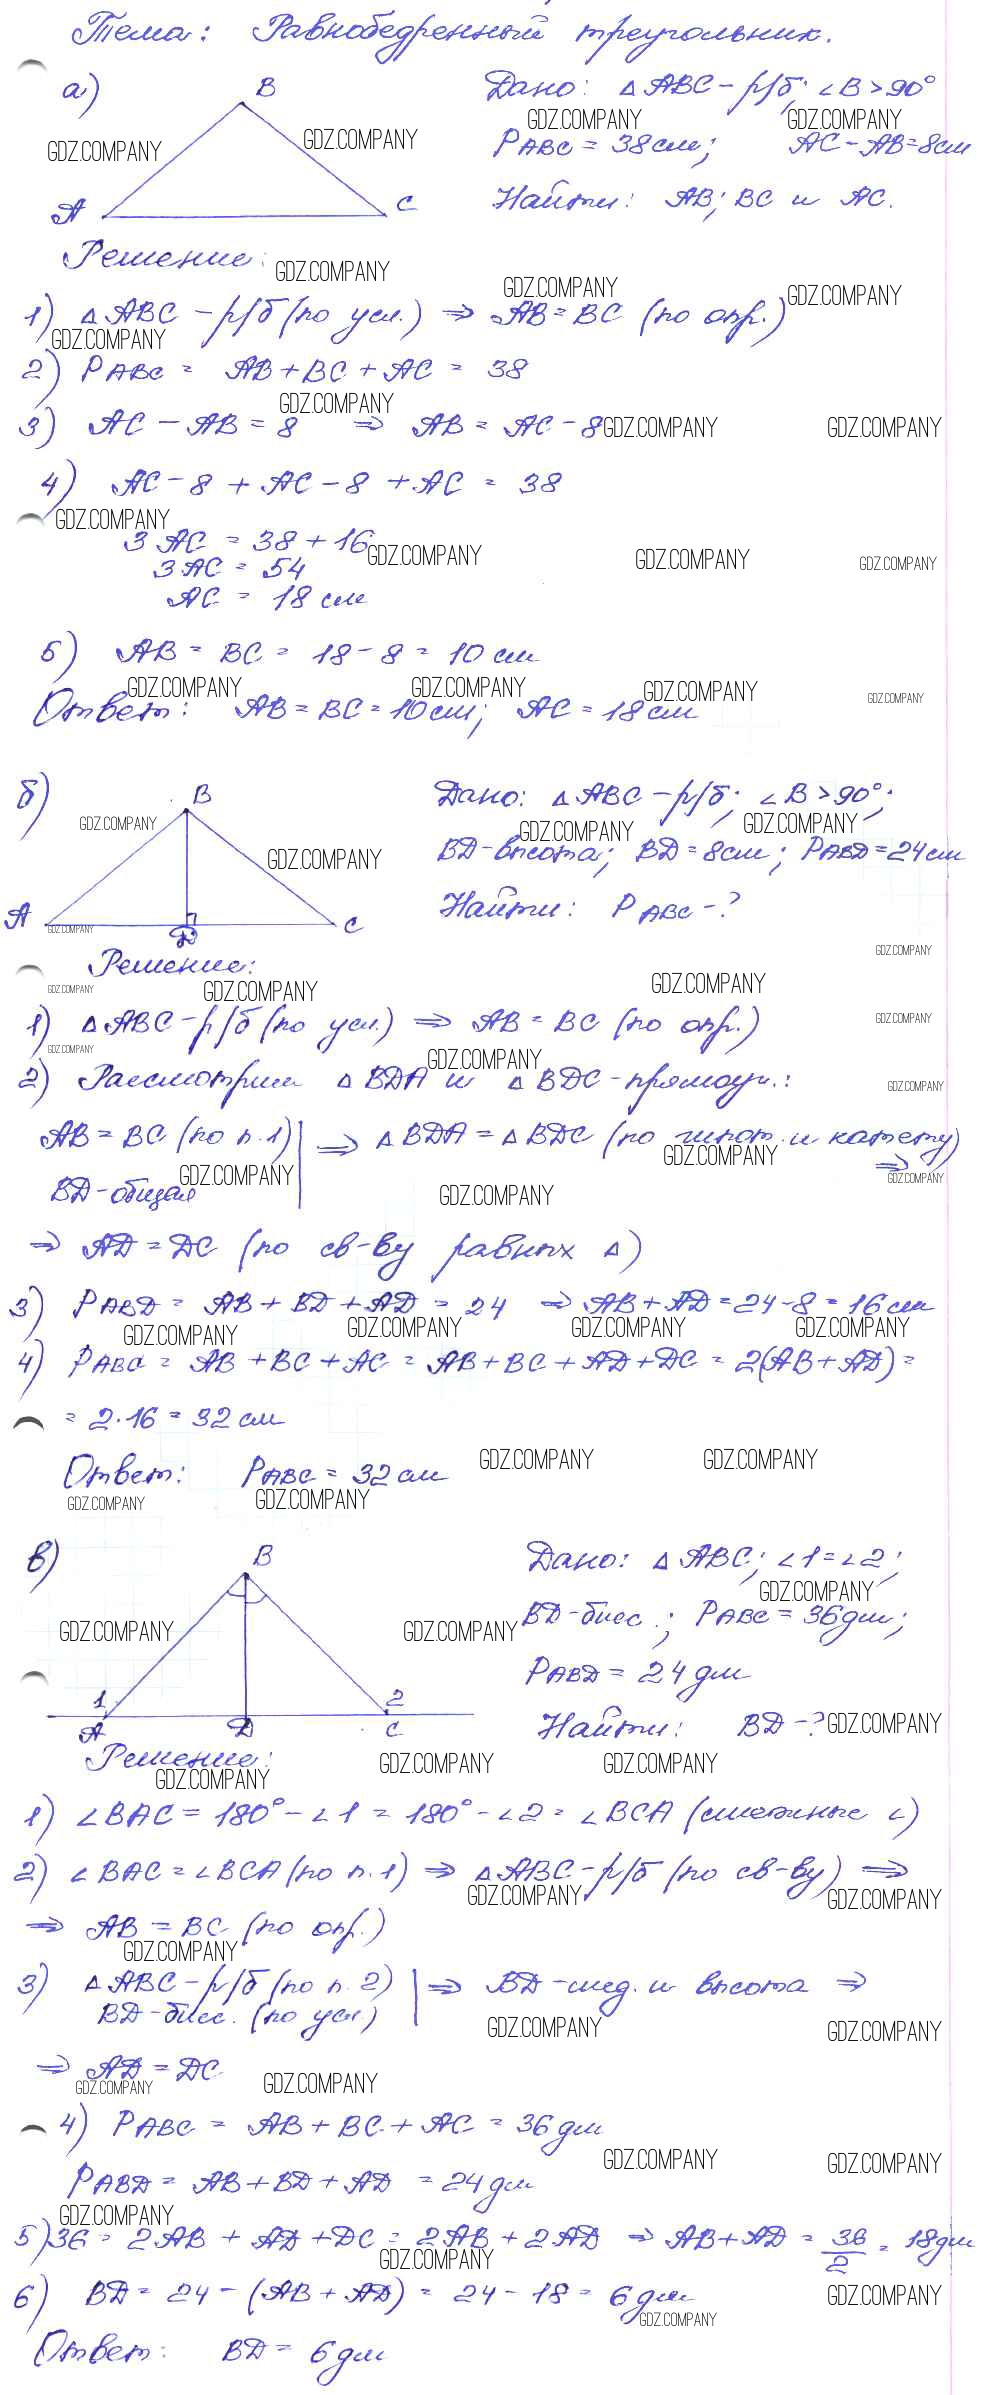 Тема: Равнобедренный треугольник.
а)
B
A
C
Дано: △ABC – р/б; ∠B > 90°
P ABC = 38 см; AC – AB = 8 см
Найти: AB; BC и AC.
Решение:
1) △ABC – р/б (по усл.) ⇒ AB = BC (по опр.)
2) P ABC = AB + BC + AC = 38
3) AC – AB = 8 ⇒ AB = AC – 8
4) AC – 8 + AC – 8 + AC = 38
3 AC = 38 + 16
3 AC = 54
AC = 18 см
5) AB = BC = 18 – 8 = 10 см
Ответ: AB = BC = 10 см; AC = 18 см
б)
B
A
D
C
Дано: △ABC – р/б; ∠B > 90°;
BD – высота; BD = 8 см; P ABD = 24 см
Найти: P ABC – ?
Решение:
1) △ABC – р/б (по усл.) ⇒ AB = BC (по опр.)
2) Рассмотрим △BDA и △BDC – прямоуг.:
AB = BC (по п. 1) | ⇒ △BDA = △BDC (по гипот. и катету) ⇒
BD – общая
⇒ AD = DC (по св-ву равных △)
3) P ABD = AB + BD + AD = 24 ⇒ AB + AD = 24 – 8 = 16 см
4) P ABC = AB + BC + AC = AB + BC + AD + DC = 2(AB + AD) =
= 2 · 16 = 32 см
Ответ: P ABC = 32 см
в)
B
1
2
A
D
C
Дано: △ABC; ∠1 = ∠2;
BD – бисс.; P ABC = 36 дм;
P ABD = 24 дм
Найти: BD – ?
Решение:
1) ∠BAC = 180° – ∠1 = 180° – ∠2 = ∠BCA (смежные ∠)
2) ∠BAC = ∠BCA (по п. 1) ⇒ △ABC – р/б (по св-ву) ⇒
⇒ AB = BC (по опр.)
3) △ABC – р/б (по п. 2) | ⇒ BD – мед. и высота ⇒
BD – бисс. (по усл)
⇒ AD = DC
4) P ABC = AB + BC + AC = 36 дм
P ABD = AB + BD + AD = 24 дм
5) 36 = 2AB + AD + DC = 2AB + 2AD ⇒ AB + AD = 36/2 = 18 дм
6) BD = 24 – (AB + AD) = 24 – 18 = 6 дм
Ответ: BD = 6 дм
GDZ.COMPANY